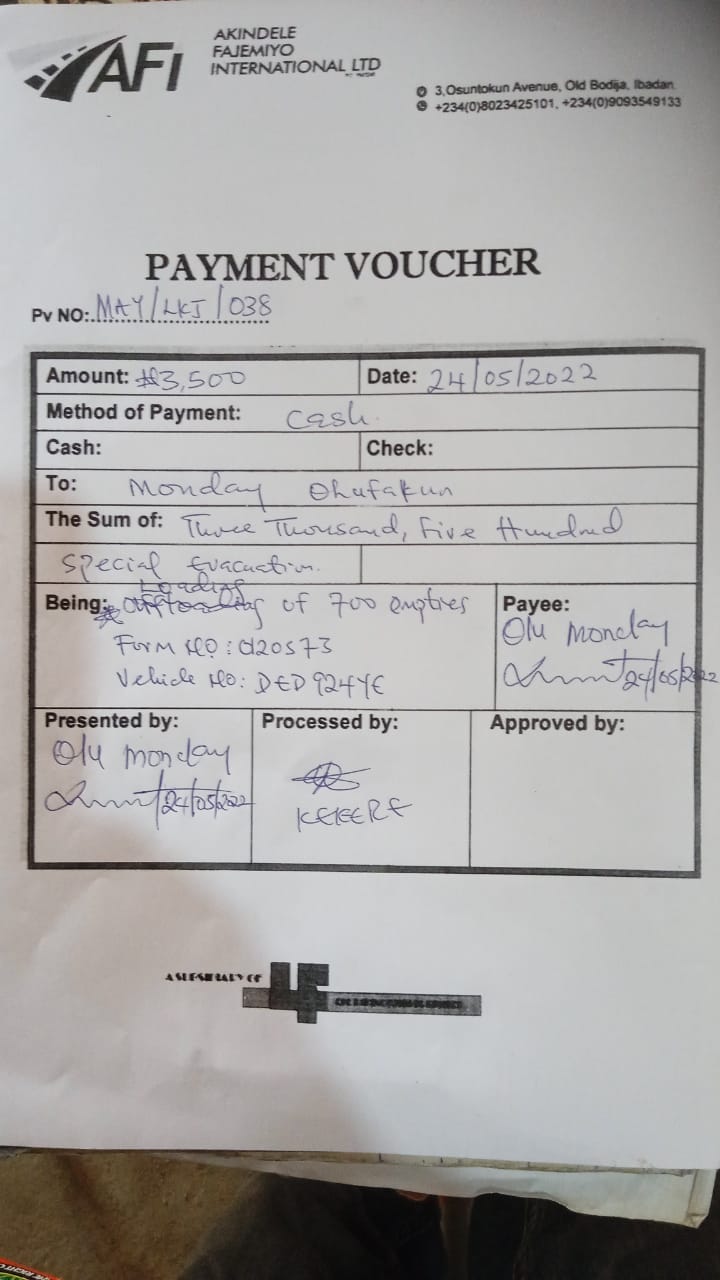 AFI
AKINDELE
FAJEMIYO
INTERNATIONAL LTD
3,Osuntokun Avenue, Old Bodija, Ibadan.
+234(0)8023425101, +234(0)9093549133
PAYMENT VOUCHER
Pv NO:.MAY/LKJ/038
Amount: ₦3,500 Date: 24/05/2022
Method of Payment: Cash.
Cash: Check:
To: Monday Olufakun
The Sum of: Three Thousand, Five Hundred
Special Evacuation.
Loading
Being: of 700 empties
Form No: 020573
Vehicle No: DED924YE
Payee:
Olu Monday
24/05/2022
Presented by: Processed by: Approved by:
Olu Monday
24/05/2022
KEKERE
A SUBSIDIARY OF